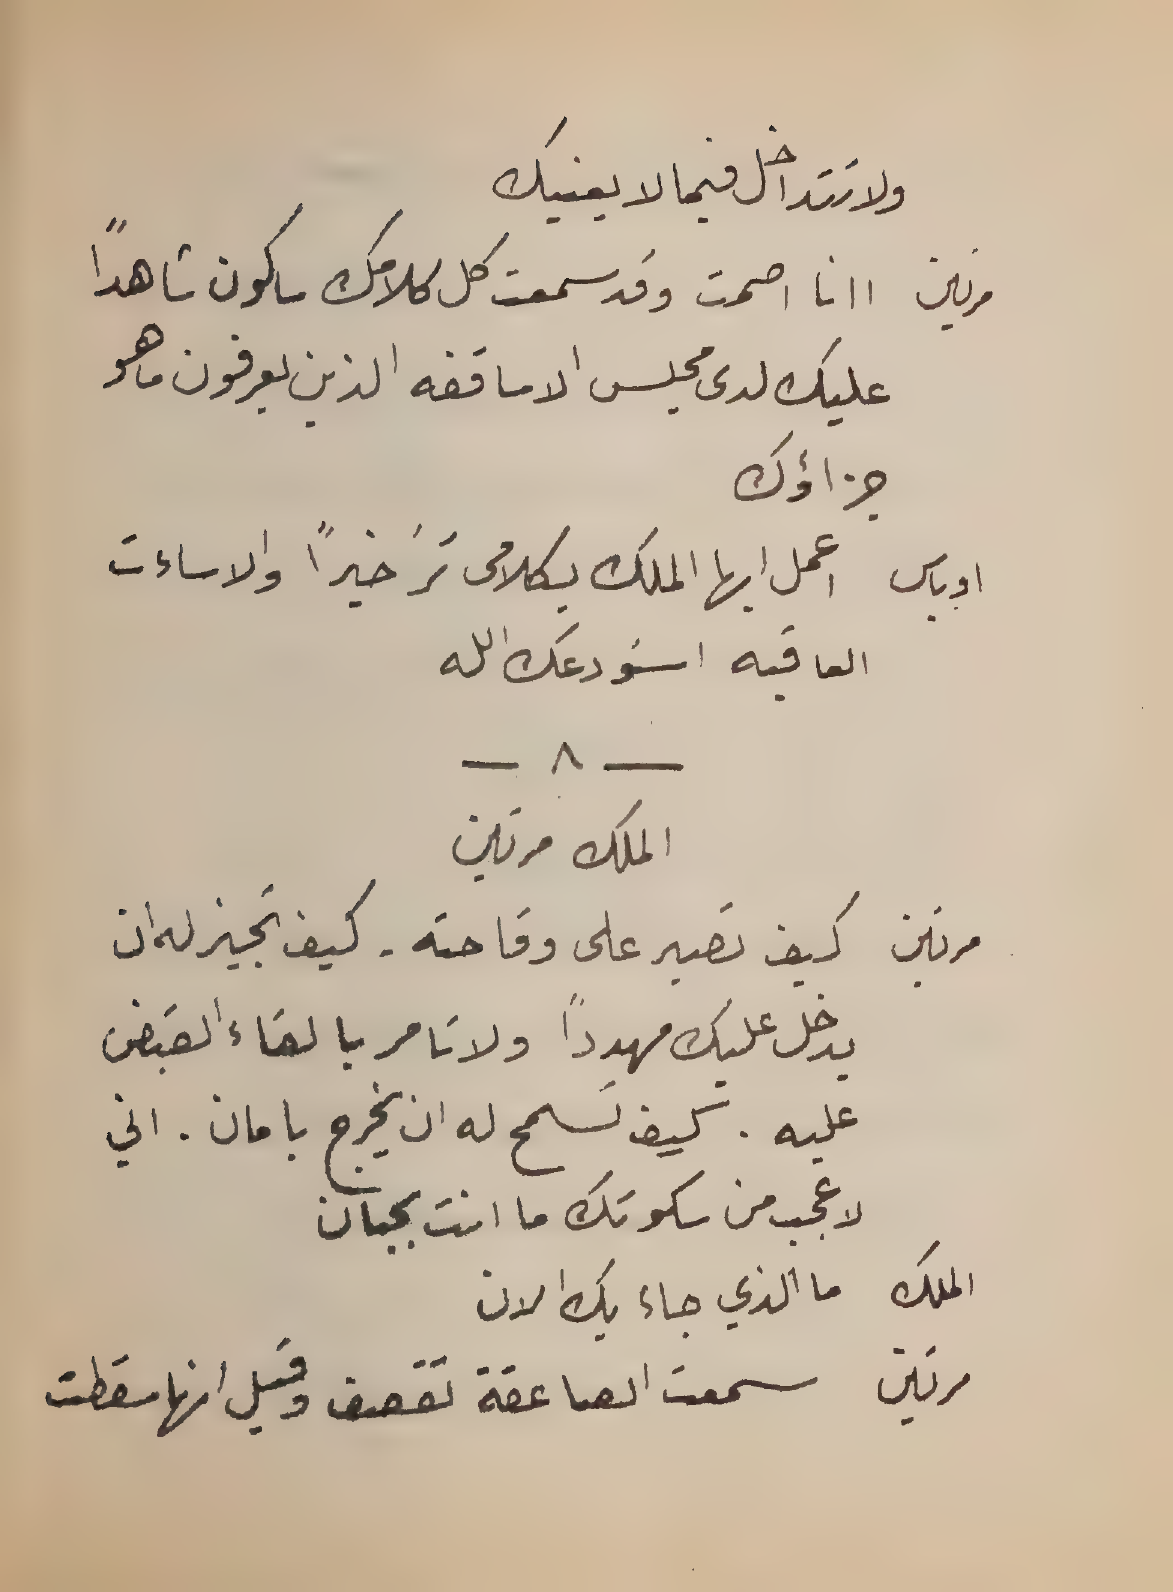 ولا تتداخل فيما لا يعنيك
مرتين اانا اصمت وقد سمعت كل كلامك ساكون شاهداً
عليك لدى مجلس الاساقفه الذين يعرفون ما هو
جزاؤك
اوباس اعمل ايها الملك بكلامى تر خيراً والا ساءت
العاقبه استودعك الله
— ٨ —
الملك مرتين
مرتين كيف تصبر على وقاحته - كيف تجيز له ان
يدخل عليك مهدداً ولا تامر بالقاء القبض
عليه . كيف تسمح له ان يخرج بامان . اني
لاعجب من سكوتك ما انت بجبان
الملك ما الذي جاء بك الان
مرتين سمعت الصاعقة تقصف وقيل انها سقطت